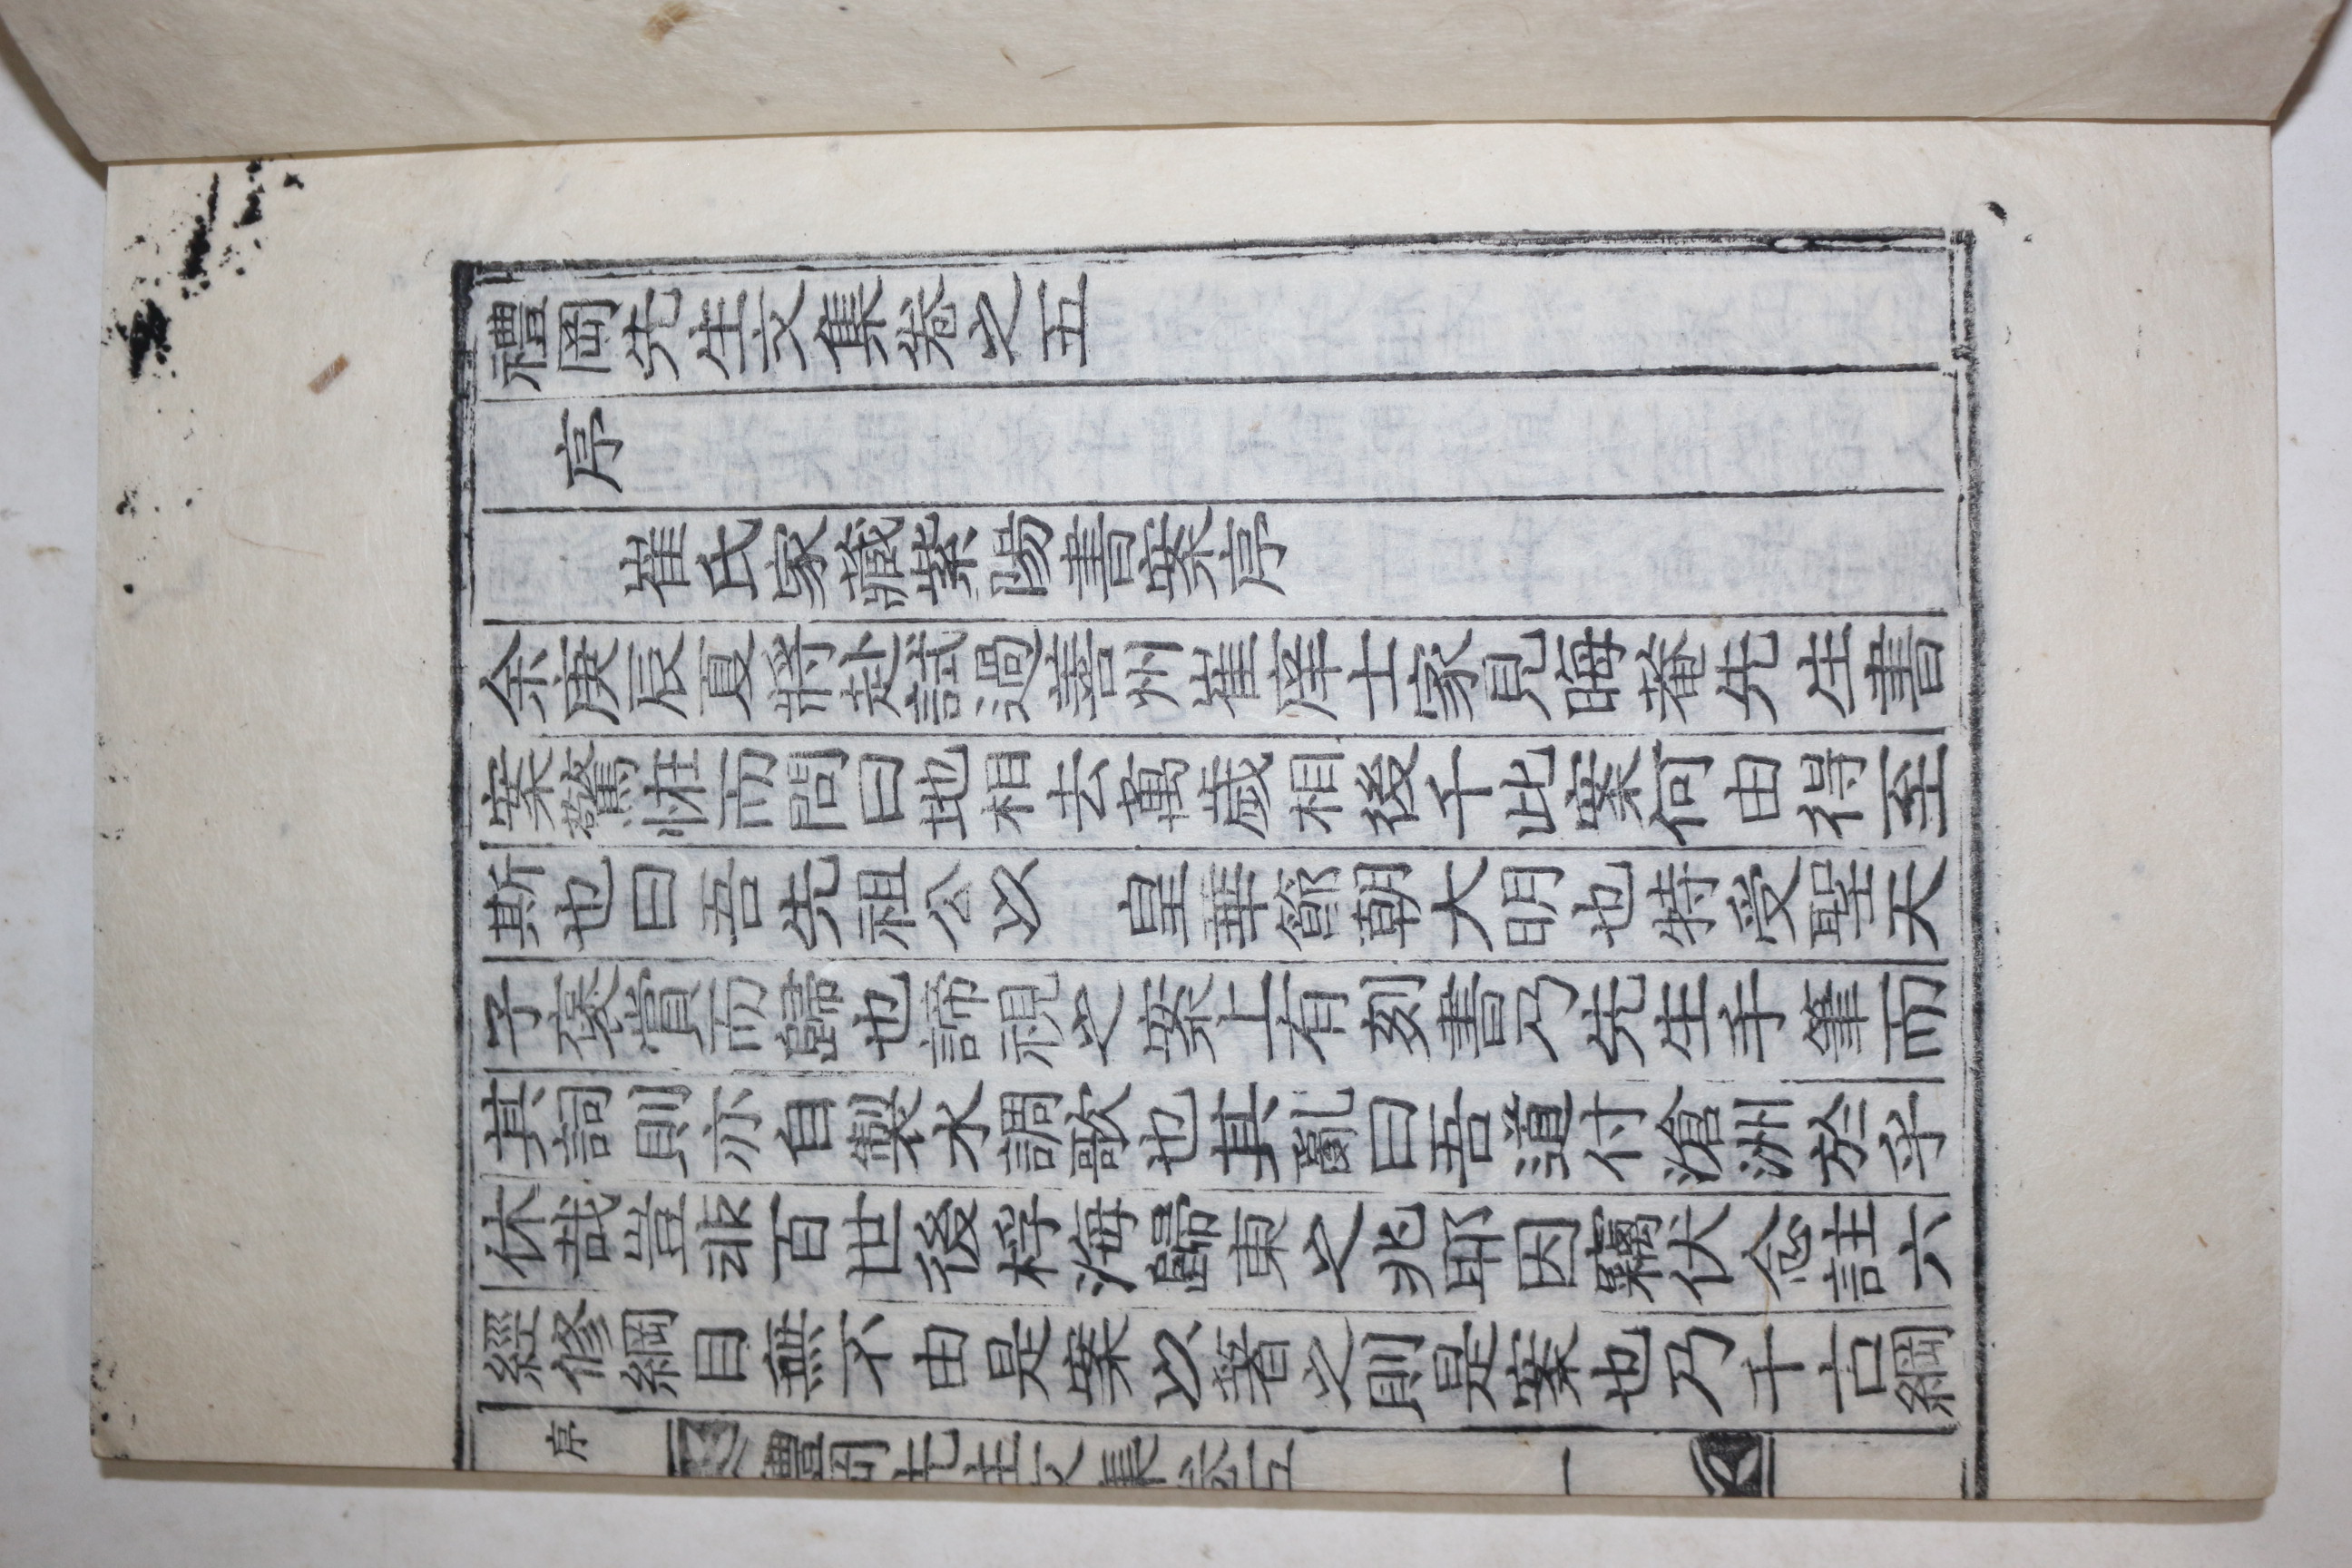 禮岡先生文集卷之五
序
崔氏家藏紫陽書案序
余庚辰夏將赴試過善州崔庠士家見晦菴先生書
案驚恠而問曰地相去萬歲相後千此案何由得至
斯也曰吾先祖公以 皇華節朝大明也特受聖天
子褒賞而歸也諦視之案上有刻書乃先生手筆而
其詞則亦自製水調歌也其亂曰吾道付滄洲於乎
休哉豈非百世後桴海歸東之兆耶因竊伏念註六
經修綱目無不由是案以著之則是案也乃千古綱
序
禮岡先生文集卷五
一